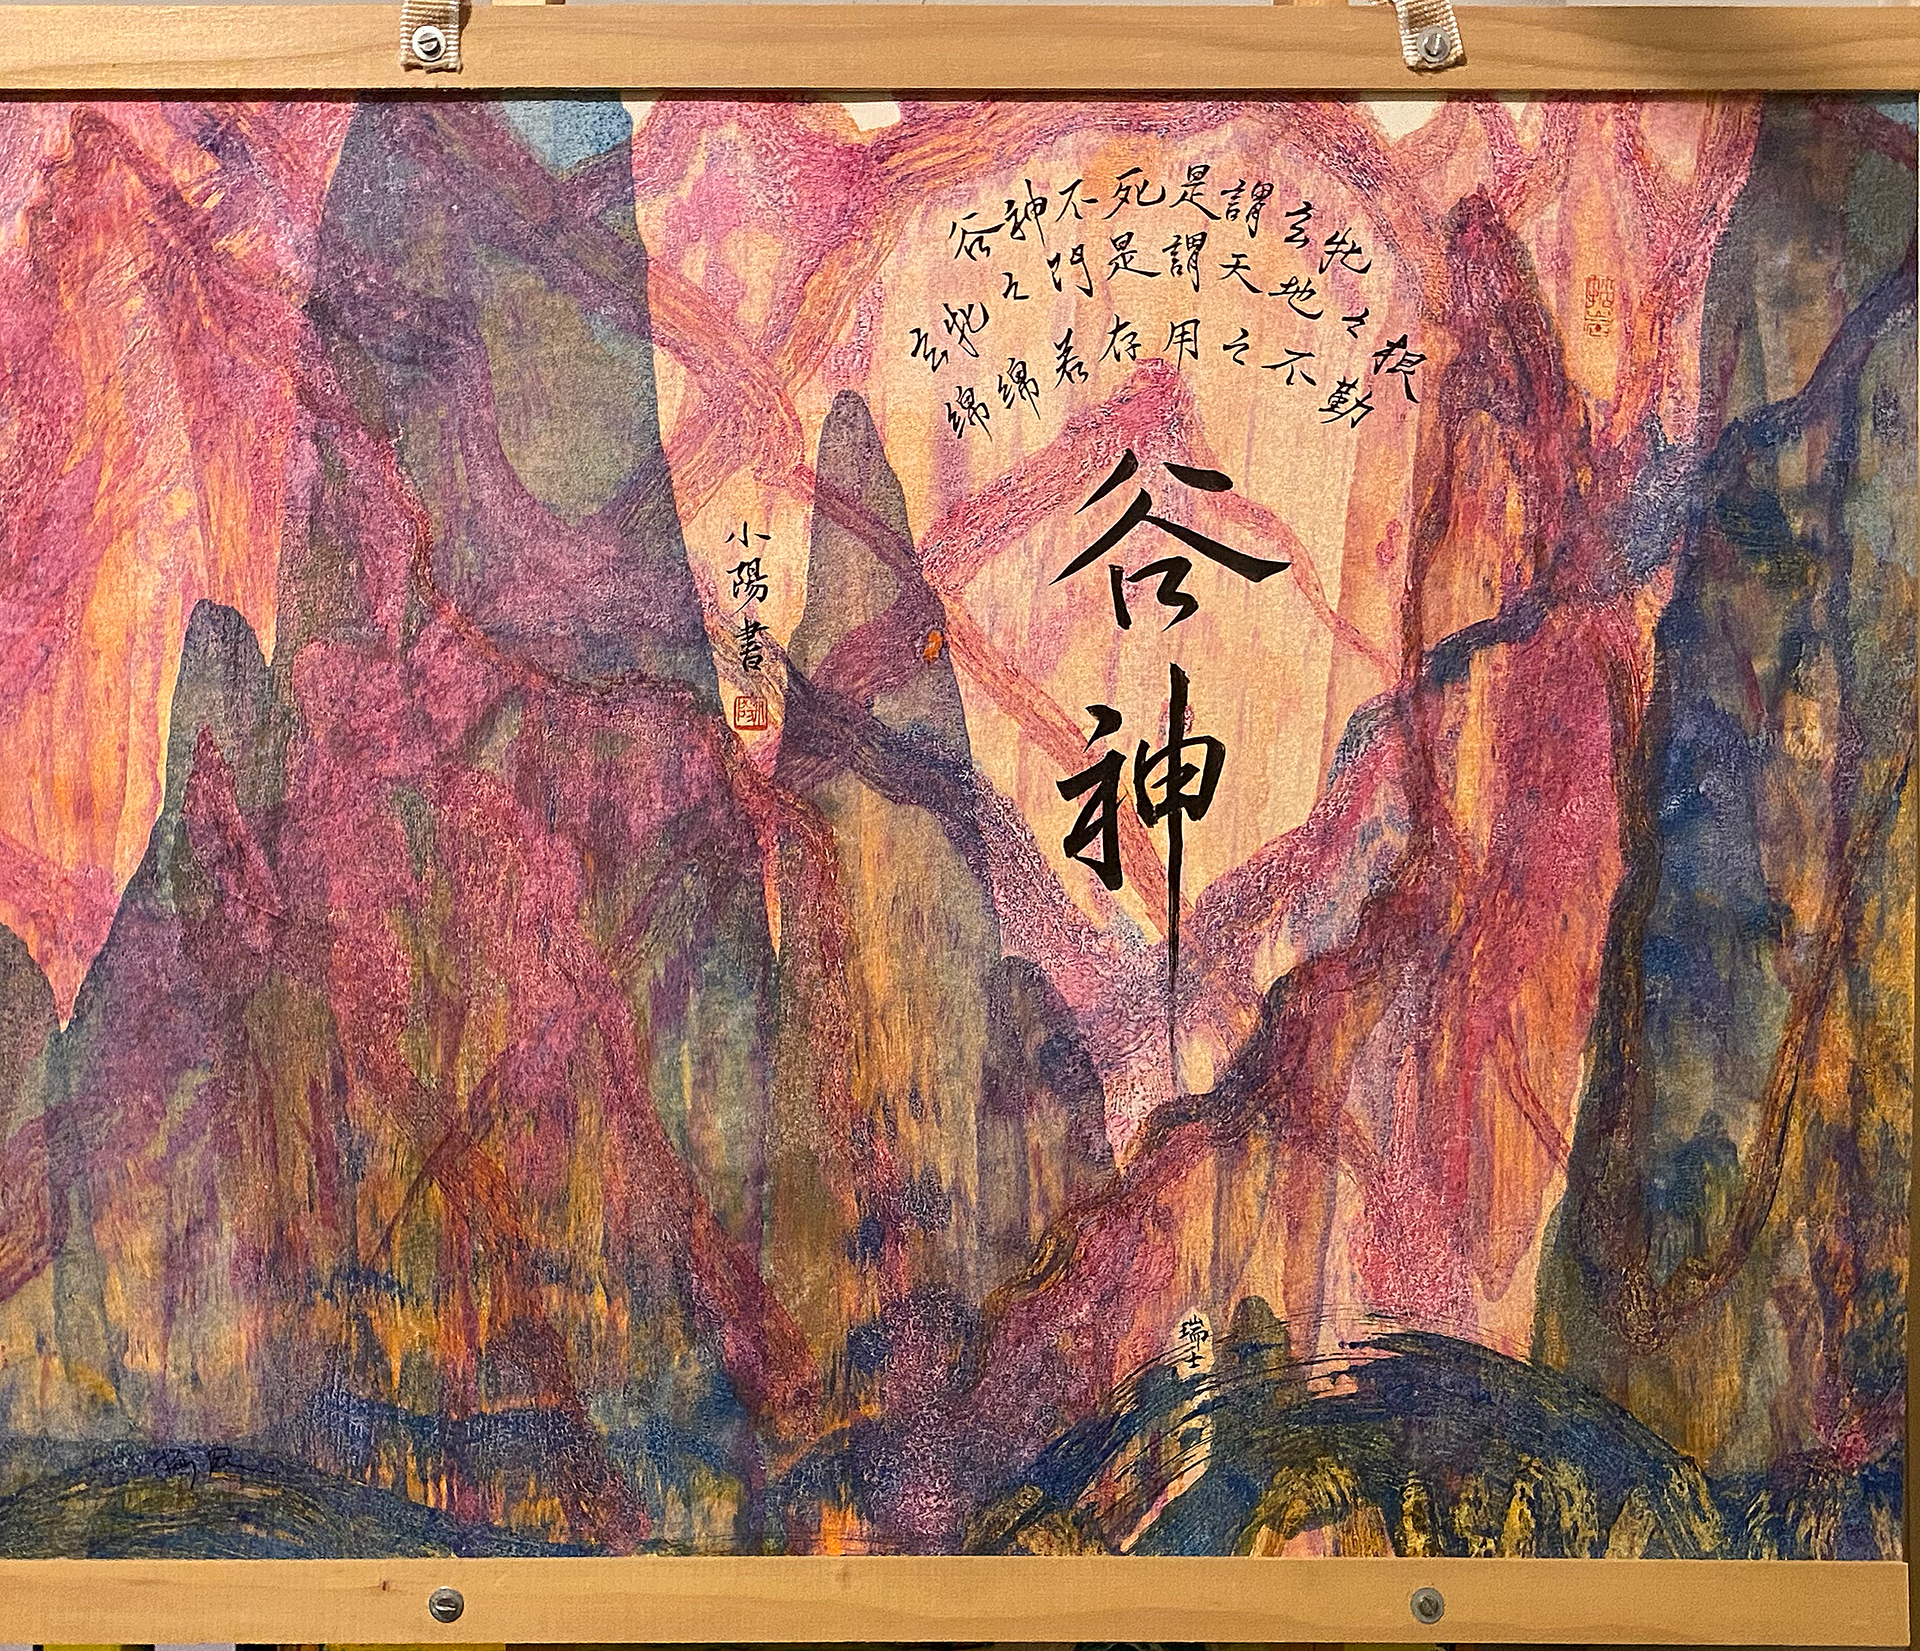 谷神不死是謂玄牝
玄牝之門是謂天地之根
綿綿若存用之不勤
谷神
小陽書
瑞士